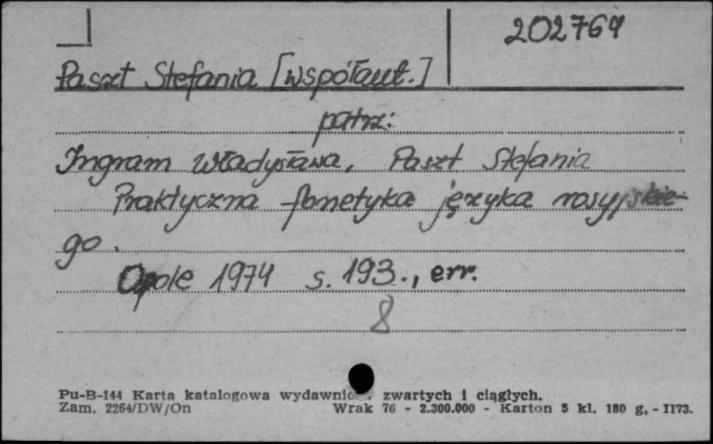 202769
Paszt Stefania [współaut.]
patrz:
Ingram Władysława, Paszt Stefania
Praktyczna fonetyka języka rosyjskie-
go.
Opole 1974 s. 193., err.
8
Pu-B-144 Karta katalogowa wydawnic zwartych i ciągłych.
Zam. 2264/DW/On Wrak 76 - 2.300.000 - Karton 5 kl. 180 g, - II73.